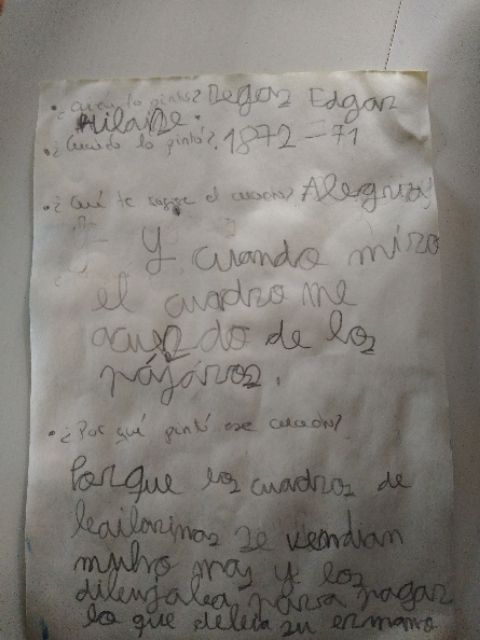 • ¿Quién lo pintó? Degas Edgar
Hilaire.
• ¿Cuándo lo pintó? 1872-71
• ¿Qué te sugiere el cuadro? Alegría
Y cuando miro
el cuadro me
acuerdo de los
pájaros.
• ¿Por qué pintó ese cuadro?
Porque los cuadros de
bailarinas se vendian
mucho mas y los
dibujaba para pagar
lo que debia su ermano